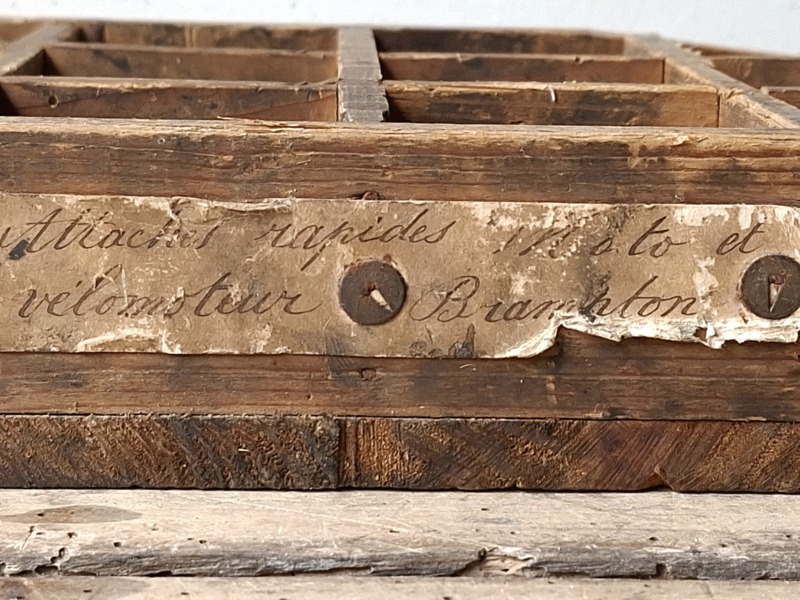 Attaches rapides Moto et
vélomoteur Brampton